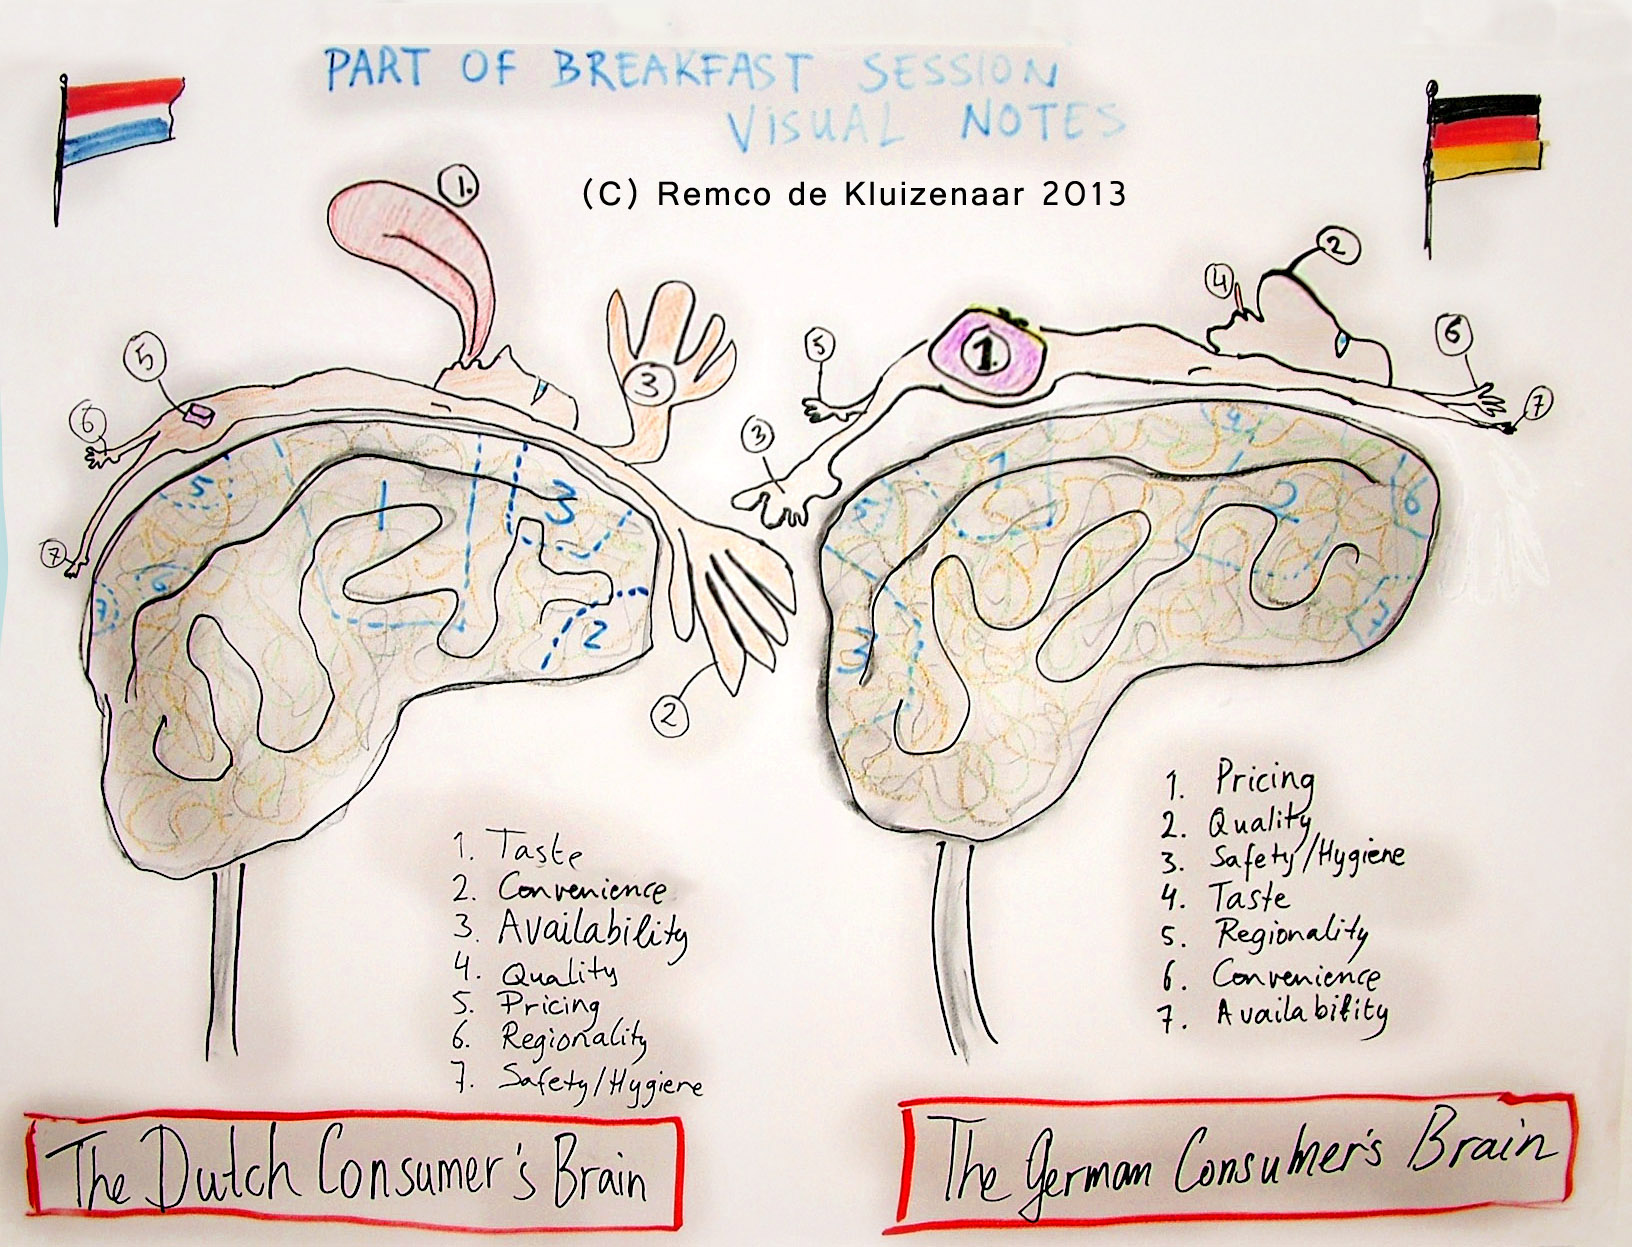 PART OF BREAKFAST SESSION
VISUAL NOTES
(C) Remco de Kluizenaar 2013
1.
3
5
6
7
2
5
1
3
6
7
2
1. Taste
2. Convenience
3. Availability
4. Quality
5. Pricing
6. Regionality
7. Safety/Hygiene
The Dutch Consumer's Brain
2
4
1.
5
6
7
3
4
1
2
6
5
3
7
1. Pricing
2. Quality
3. Safety/Hygiene
4. Taste
5. Regionality
6. Convenience
7. Availability
The German Consumer's Brain